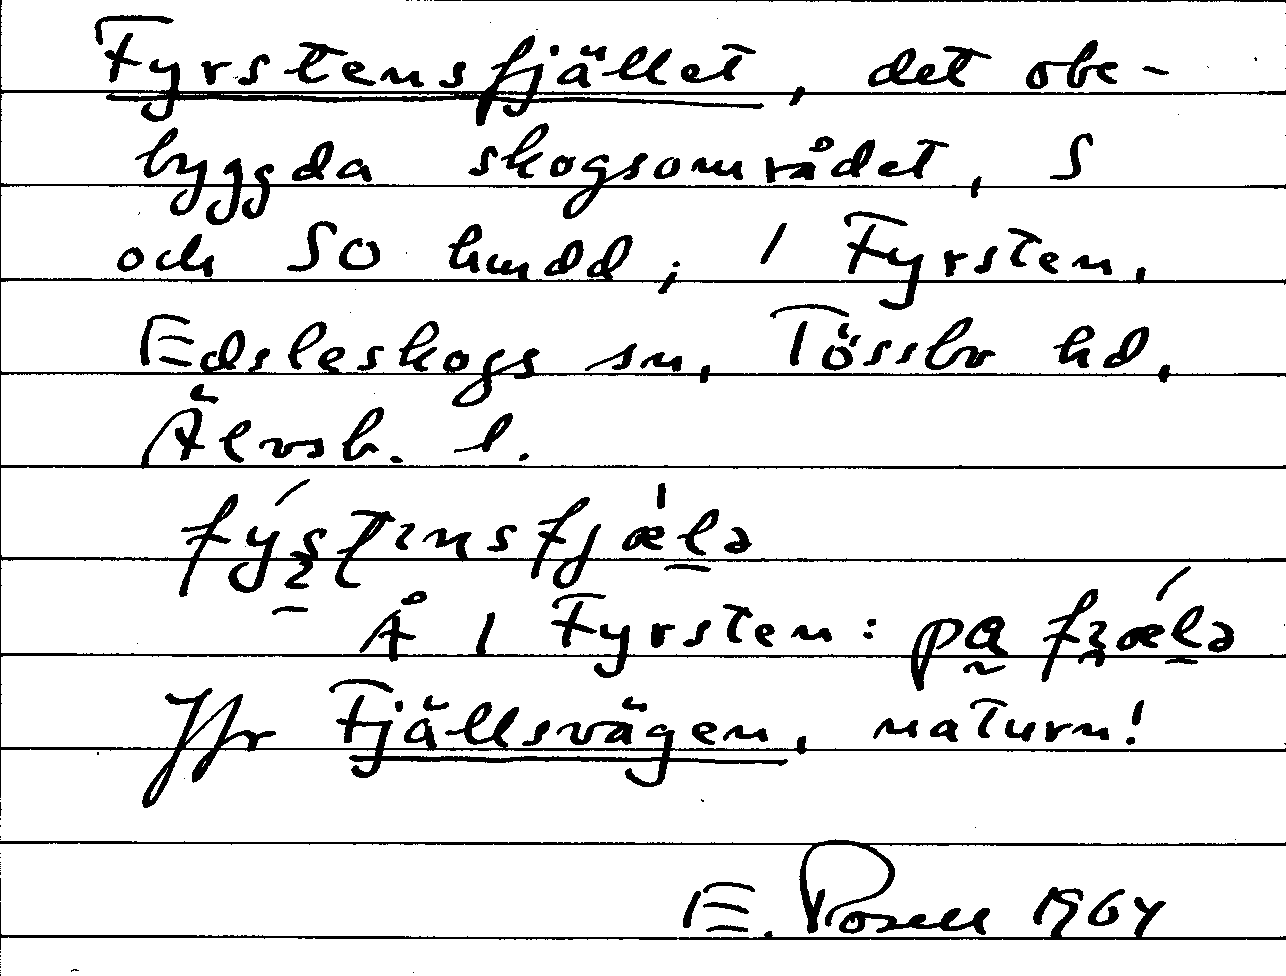 Fyrstensfjället, det obe-
byggda skogsområdet, S
och SO hmdd, i Fyrsten,
Edsleskogs sn, Tössbo hd,
Älvsb. l.
Å i Fyrsten: på
Jfr Fjällsvägen, naturn!
E. Rosell 1964